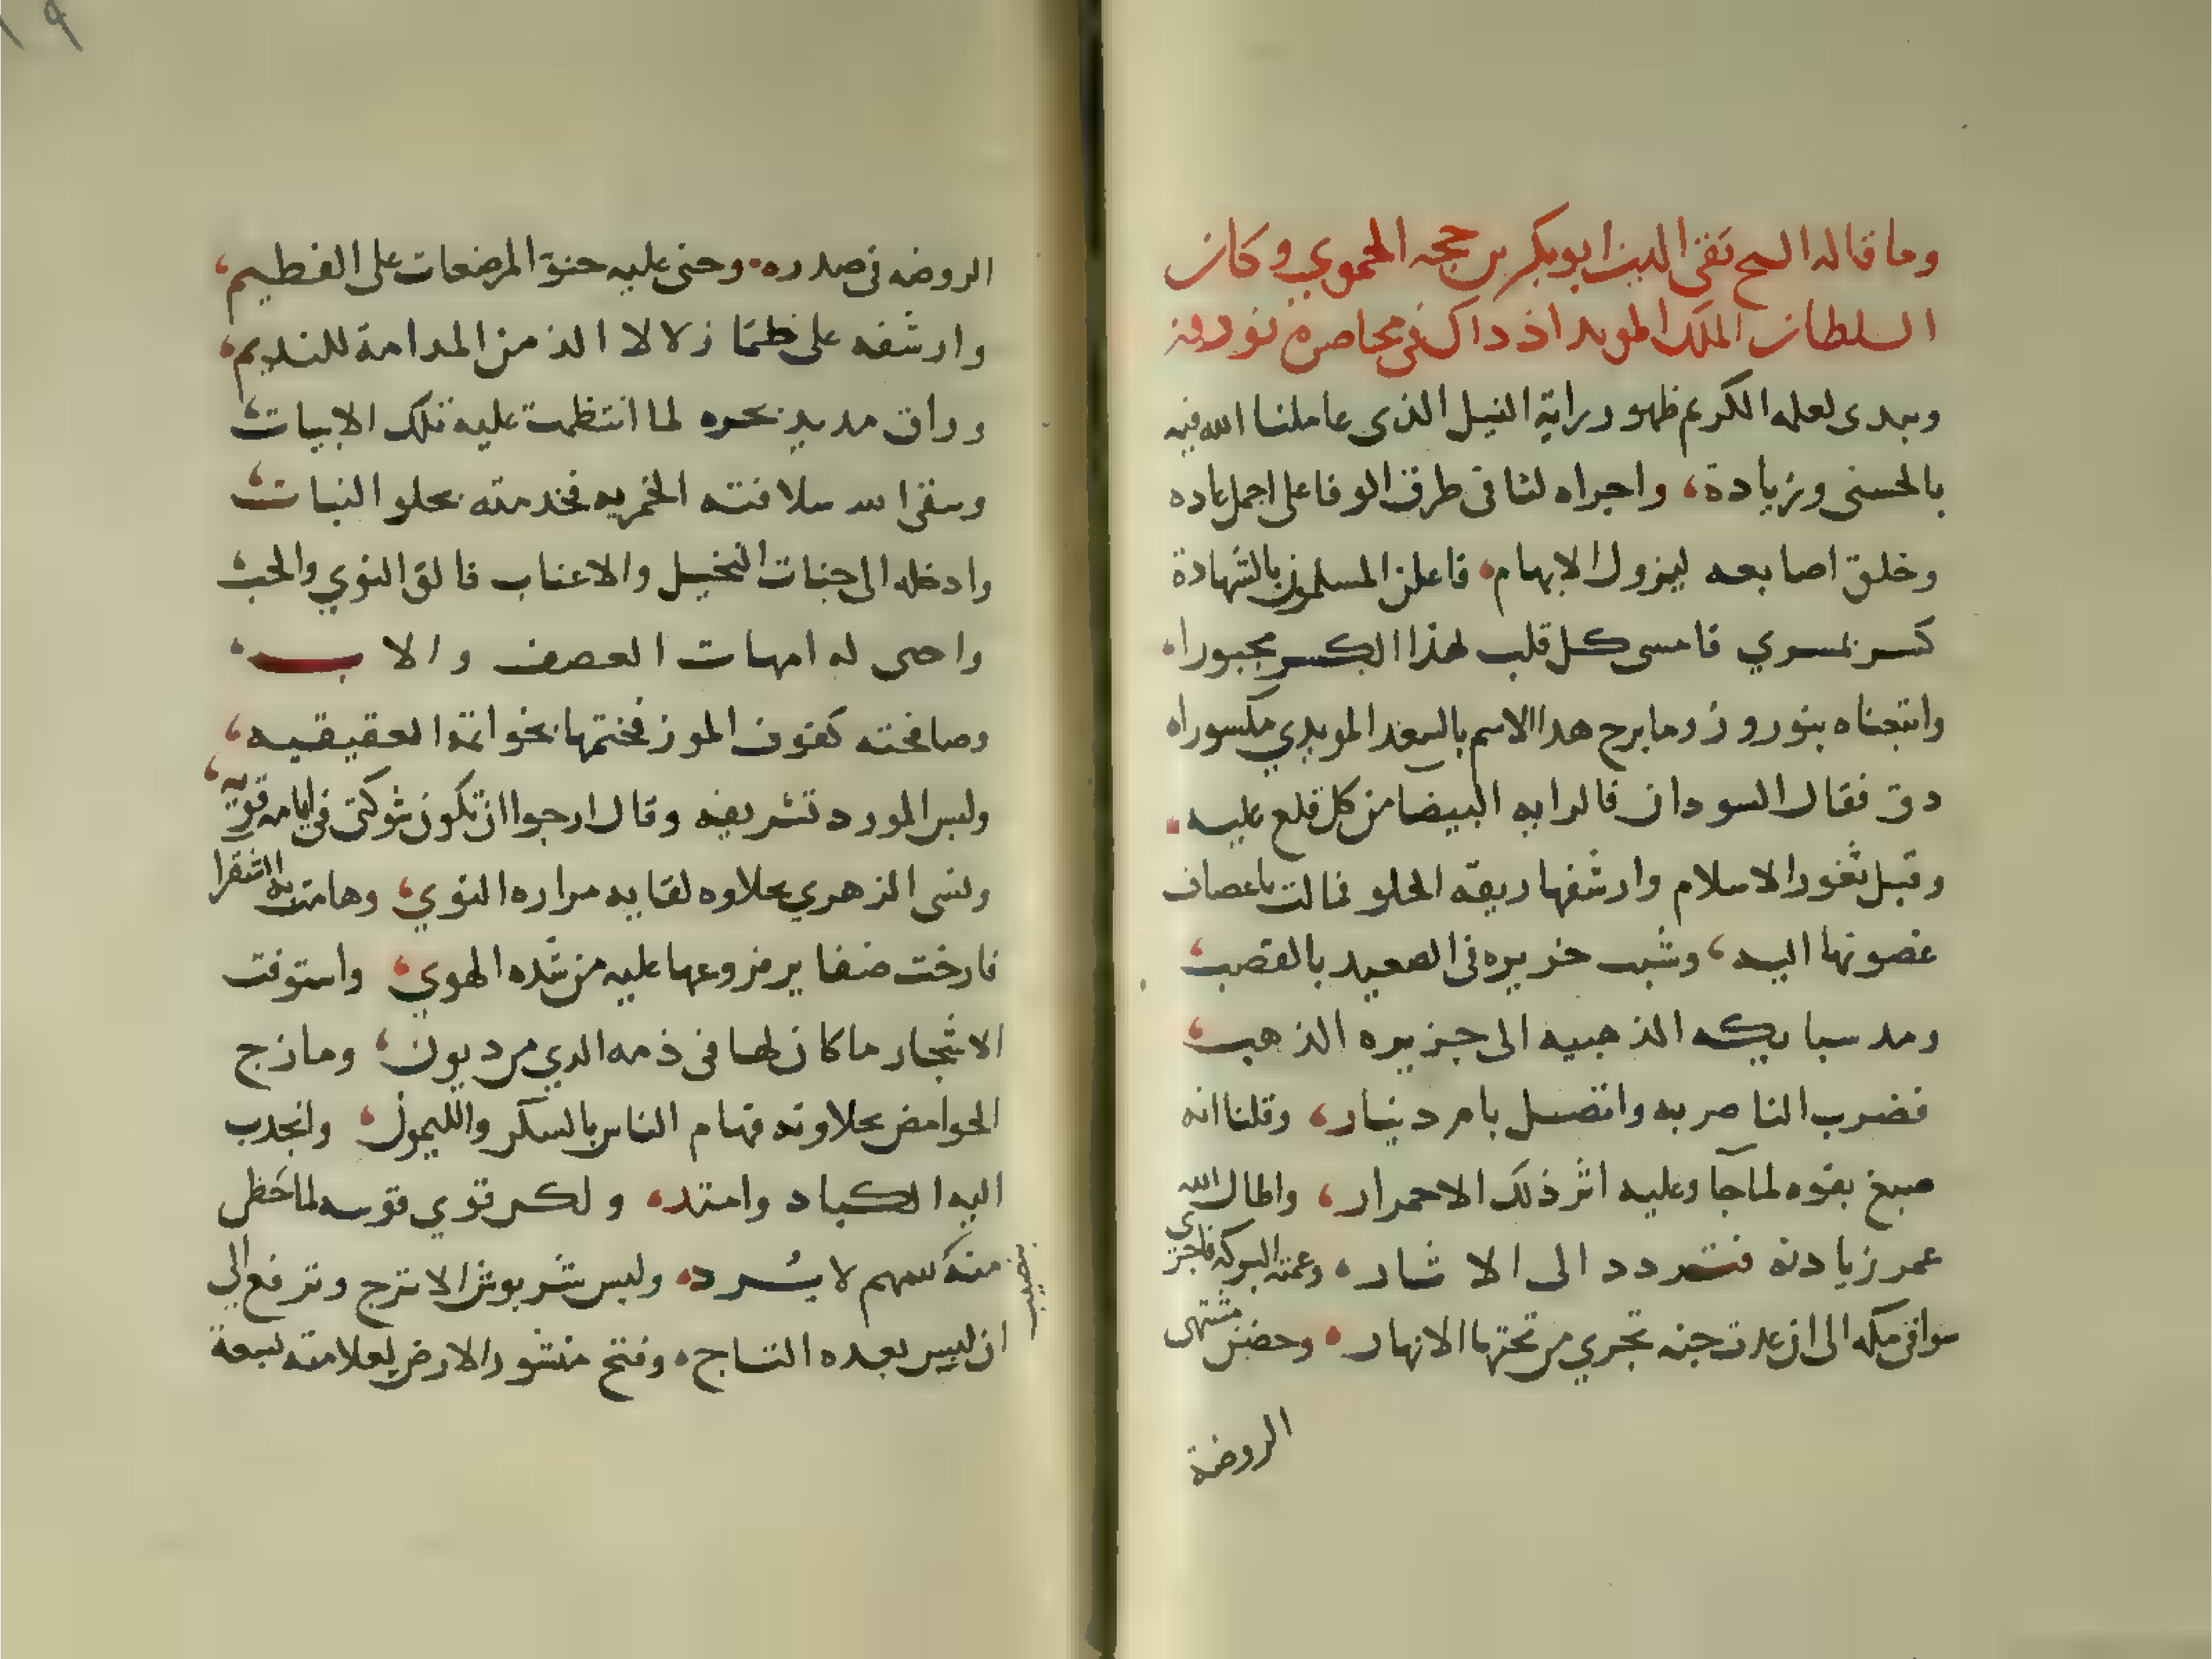 وما قاله الشيخ تقي الدين ابو بكر بن حجه الحموي وكان
السلطان الملك المويد اذ ذاك في محاصرة نوروز
ويبدى لعلمه الكريم ظهور اية النيل الذى عاملنا الله فيه
بالحسنى وزيادة، واجراه لنا في طرق الوفا على اجمل عاده
وخلق اصابعه ليزول الابهام، فاعلن المسلمون بالشهادة
كسر بمسري فامسى كل قلب لهذا الكسر مجبورا،
واتبعناه بنوروز وما برح هذا الاسم بالسعد المويدي مكسورا،
دق فقا السودان فالرايه البيضا من كل قلع عليه،
وقبل ثغور الاسلام وارشفها ريقه الحلو فمالت باعطاف
غصونها اليه، وشبب خريره في الصعيد بالقصب،
ومد سبايكه الذهبيه الى جزيره الذهب،
فضرب الناصريه واتصل بام دينار، وقلنا انه
صبغ بقوه لما جا وعليه اثر ذلك الاحمرار، واطال الله
عمر زيادته فتردد الى الاثار، وعمته البركه فاجرى
سواقي مكه الى ان غدت جنه تجري من تحتها الانهار، وحضن مشتهى
الروضة
الروضه في صدره، وحنى عليه حنو المرضعات على الفطيم،
وارشفه على ظما زلالا الذ من المدامة للنديم،
وراق مديد بحره لما انتظمت عليه تلك الابيات،
وسقى الله سلافته الخمريه فخدمته بحلو النبات،
وادخله الى جنات النخيل والاعناب فالق النوي والحب،
واحى له امهات العصف والاب،
وصافحته كفوف الموز فختمها بخواتمه العقيقيه،
ولبس المورد تشريفه وقال ارجوا ان تكون شوكتى في ايامه قويه،
ونسى الزهري بحلاوه لقايه مراره النوي، وهامت به الشقرا
فارخت ضفاير فروعها عليه من شده الهوي، واستوفت
الاشجار ما كان لها في ذمه الري من ديون، ومازج
الحوامض بحلاوته فهام الناس بالسكر والليمون، وانجدب
اليه الكباد وامتد، ولكن قوي قوسه لما حظى
بنصيب
منه كسهم لا يرد، ولبس شربوش الاترج وترفع الى
ان لبس بعده التاج، وفتح منثور الارض لعلامته بسعة